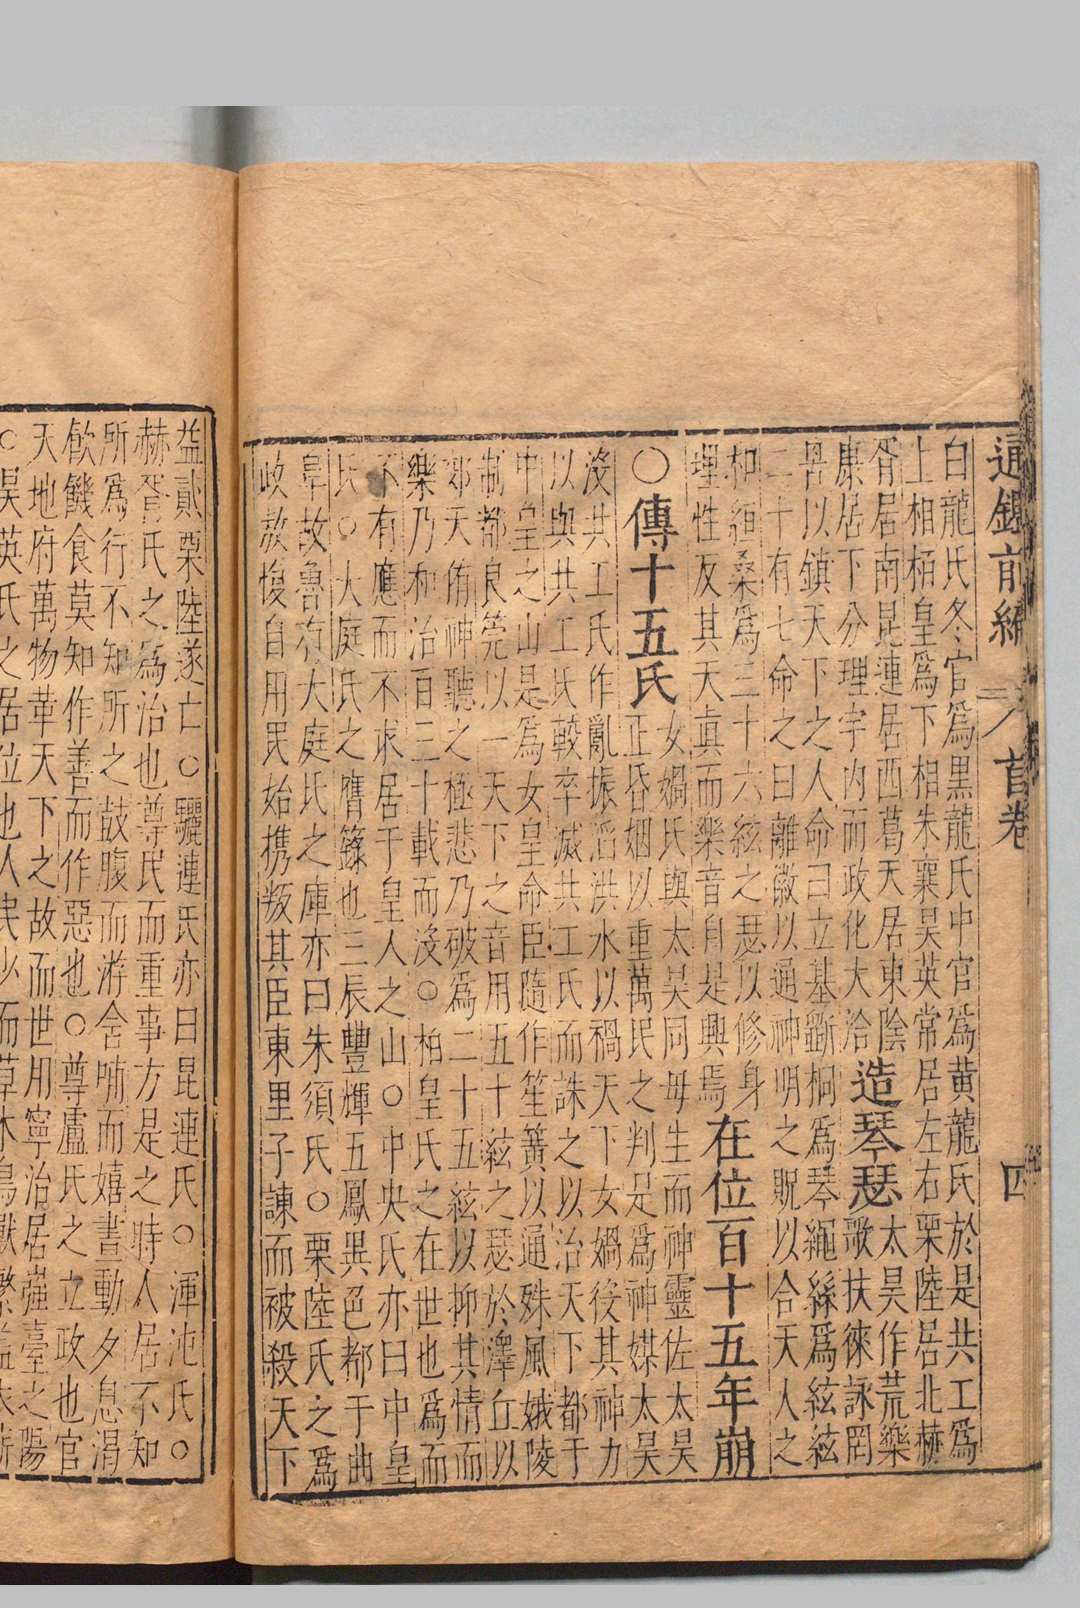 通鑑前編
首卷
四
白龍氏冬官爲黑龍氏中官爲黄龍氏於是共工爲
上相柏皇爲下相朱襄昊英常居左右栗陸居北赫
胥居南昆連居西葛天居東陰
康居下分理宇内而政化大洽
造琴瑟
太昊作荒樂
歌扶徠詠罔
罟以鎮天下之人命曰立基斵桐爲琴繩絲爲絃絃
二十有七命之曰離徽以通神明之貺以合天人之
和絙桑爲三十六絃之瑟以修身
理性反其天眞而樂音自是興焉
在位百十五年崩
○傳十五氏
女媧氏與太昊同母生而神靈佐太昊
正昏姻以重萬民之判是爲神媒太昊
没共工氏作亂振滔洪水以禍天下女媧役其神力
以與共工氏較卒滅共工氏而誅之以治天下都于
中皇之山是爲女皇命臣隨作笙簧以通殊風娥陵
制都良筦以一天下之音用五十絃之瑟於澤丘以
郊天侑神聽之極悲乃破爲二十五絃以抑其情而
樂乃和治百三十載而沒○柏皇氏之在世也爲而
不有應而不求居于皇人之山○中央氏亦曰中皇
氏○大庭氏之膺籙也三辰豐輝五鳳異色都于曲
阜故魯有大庭氏之庫亦曰朱須氏○栗陸氏之爲
政敖愎自用民始携叛其臣東里子諫而被殺天下
益貳栗陸遂亡○驪連氏亦曰昆連氏○渾沌氏○
赫胥氏之爲治也尊民而重事方是之時人居不知
所爲行不知所之鼓腹而游含哺而嬉晝動夕息渴
飲饑食莫知作善而作惡也○尊盧氏之立政也官
天地府萬物華天下之故而世用寧治居強臺之陽
○昊英氏之居位也人民少而草木鳥獸繁